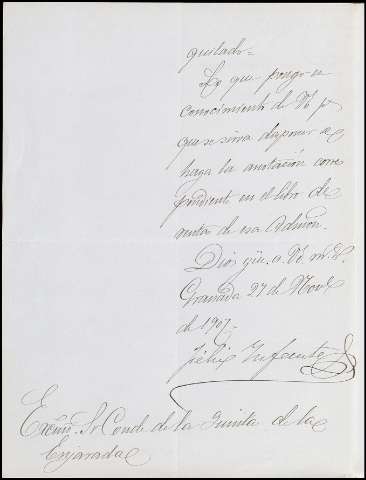 quilado=
Lo que pongo en
conocimiento de V. pª
que se sirva disponer se
haga la anotación corres
pondiente en el libro de
de esa Admon.
Dios gue. a V. m. a.
Granada 27 de Novbe
de 1907.
Félix Infante
Excmo. Sr Conde de la Quinta de la
Enjarada